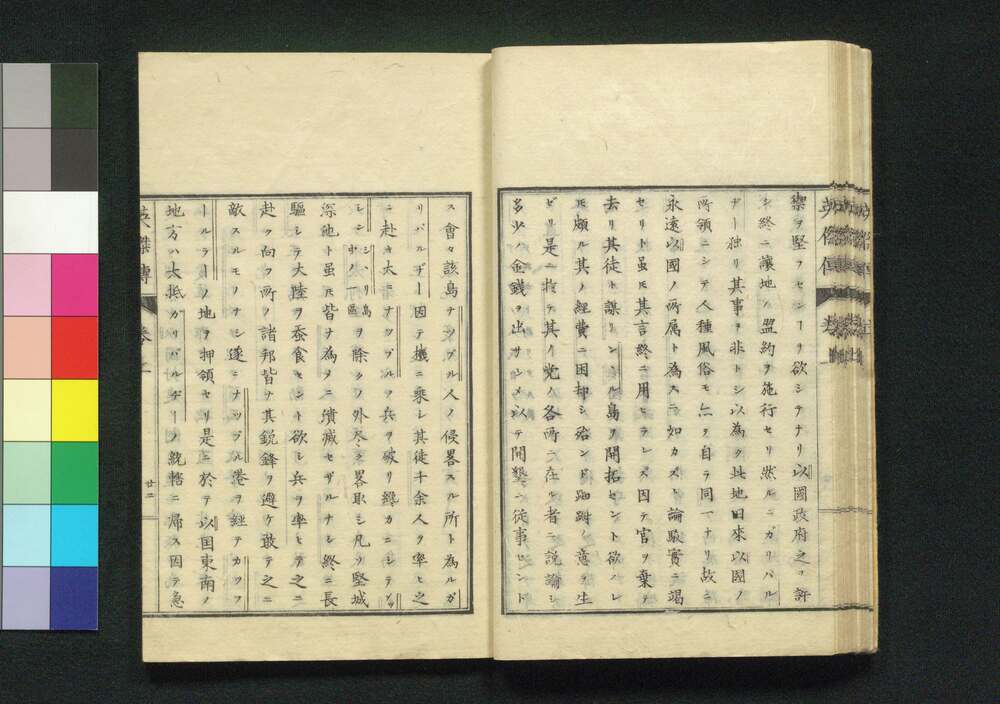 禦ヲ堅フセンヿヲ欲シテナリ以國政府之ヲ許
シ終ニ讓地ノ盟約ヲ施行セリ然ルニガリバル
ヂー独リ其事ヲ非トシ以為ク此地旧來以國ノ
所領ニシテ人種風俗モ亦ヲ自ラ同一ナリ故ニ
永遠以國ノ所属ト為スニ如カズト論駁實ニ竭
セリト虽モ其言終ニ用ヒラレズ因テ官ヲ棄テ
去リ其徒ト謀リ島ヲ開拓セント欲スレ
モ頗ル其ノ経費ニ困却シ殆ンド踟蹰ノ意ヲ生
ゼリ是ニ於テ其ノ党ノ各所ニ在ル者ニ説諭シ
多少ノ金銭ヲ出サシメ以テ開墾ニ従事セント
ス會々該島ナップル人ノ侵畧スル所ト為ルガ
リバルヂー因テ機ニ乗レ其徒千余人ヲ率ヒ之
ニ赴キ大ニナップル兵ヲ破リ纔カニシテ
シシリ島中ノ一區ヲ除クノ外尽ク畧取シ凡ソ堅城
深池ト虽モ皆ナ為メニ潰滅セザルナシ終ニ長
驅シテ大陸ヲ蚕食セント欲シ兵ヲ率ヒテ之ニ
赴ク向フ所ノ諸邦皆ナ其鋭鋒ヲ避ケ敢テ之ニ
敵スルモノナシ遂ニナップル港ヲ経テカプフ
ールラーノ地ヲ押領セリ是ニ於テ以国東南ノ
地方ハ大抵ガリバルヂーノ統轄ニ帰ス因テ急
英傑傳 巻之 廿二